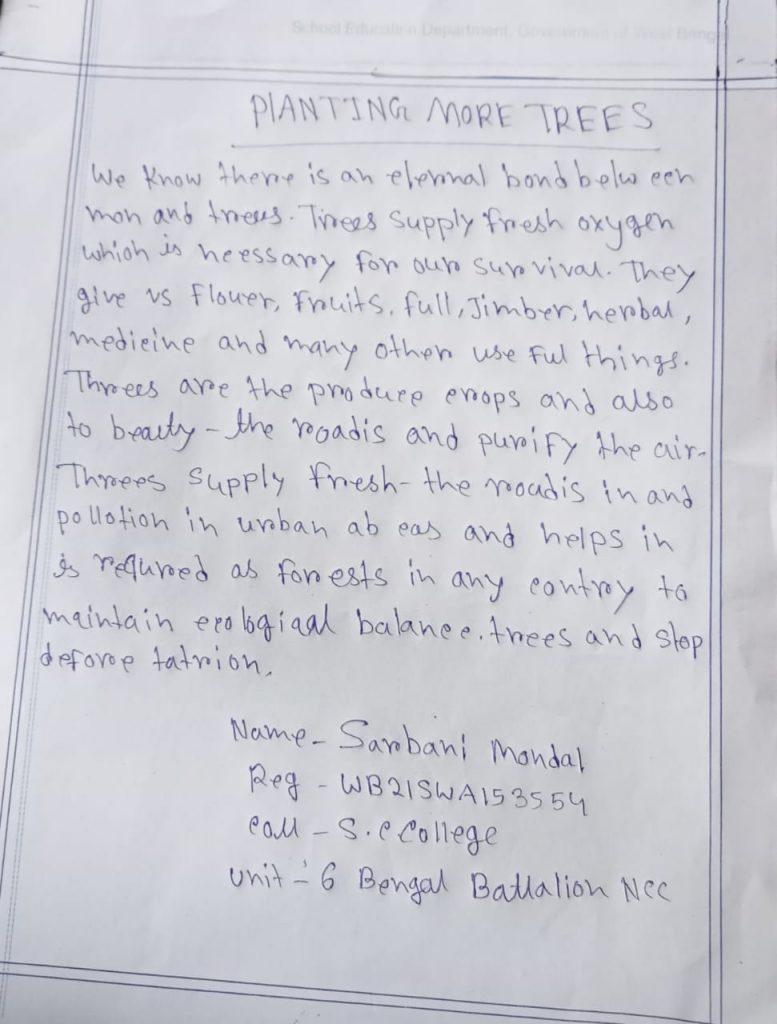 School Education Department, Government of West Bengal
PLANTING MORE TREES
We know there is an eternal bond between
man and trees. Trees supply fresh oxygen
which is neessary for our survival. They
give us flower, fruits, full, Jimber, herbal,
medicine and many other use ful things.
Threes are the produce crops and also
to beauty - the roadis and purify the air-
Threes supply fresh - the roadis in and
pollotion in urban ab eas and helps in
is requred as forests in any contry to
maintain ecologiaal balance. trees and stop
defore tatrion.
Name - Sarbani Mondal
Reg - WB21SWA153554
Coll - S.C College
Unit - 6 Bengal Battalion NCC